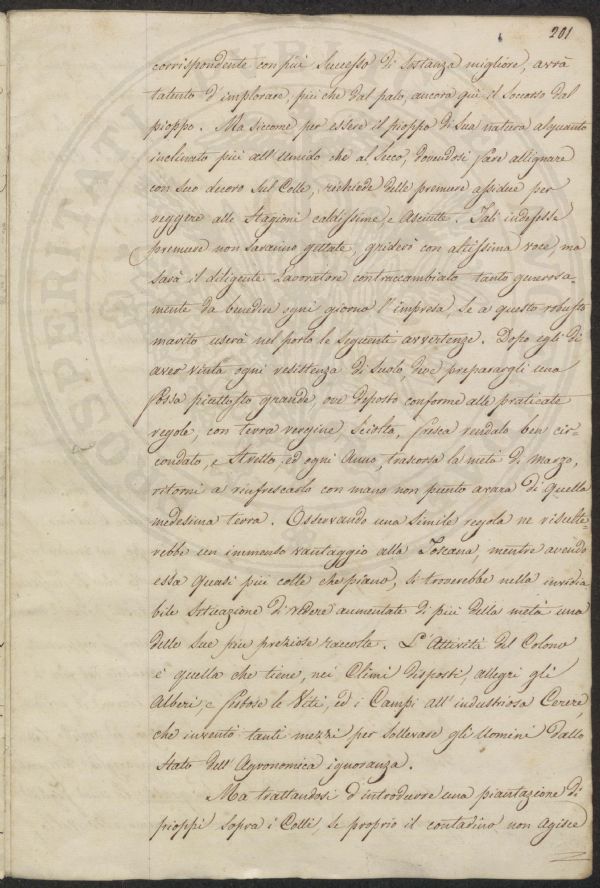 201
corrispondente con più successo di sostanza migliore, avrà
talento d'implorare, più che dal palo, ancora quì il soccorso dal
pioppo. Ma siccome per essere il pioppo di sua natura alquanto
inclinato più all'Umido che al secco, dovendosi fare allignare
con suo decoro sul Colle, richiede delle premure assidue per
reggere alle Stagioni caldissime, e Asciutte. Tali indefesse
premure non saranno gettate, griderò con altissima voce, ma
sarà il diligente Lavoratore contraccambiato tanto generosa-
mente da benedire ogni giorno l'impresa, se a questo robusto
marito userà nel porlo le seguenti avvertenze. Dopo egli di
aver vinta ogni resistenza di suolo, deve preparargli una
fossa piuttosto grande, ove deposto conforme alle praticate
regole, con terra vergine, sciolta, fresca rendalo ben cir-
condato, e Stretto ed ogni Anno, trascorsa la metà di Marzo,
ritorni a rinfrescarlo con mano non punto avara di quella
medesima terra. Osservando una simile regola ne risulte-
rebbe un immenso vantaggio alla Toscana, mentre avendo
essa quasi più colle che piano, si troverebbe nella invidia
bile situazione di vedere aumentate di più della metà una
delle sue più preziose raccolte. L'Attività del Colono
è quella che tiene, nei Climi disposti, allegri gli
Alberi, e festose le Viti, ed i Campi all'industriosa Cerere,
che inventò tanti mezzi per sollevare gli Uomini dallo
Stato dell'Agronomica ignoranza.
Ma trattandosi d'introdurre una piantazione di
pioppi sopra i Colli, se proprio il contadino non agisce